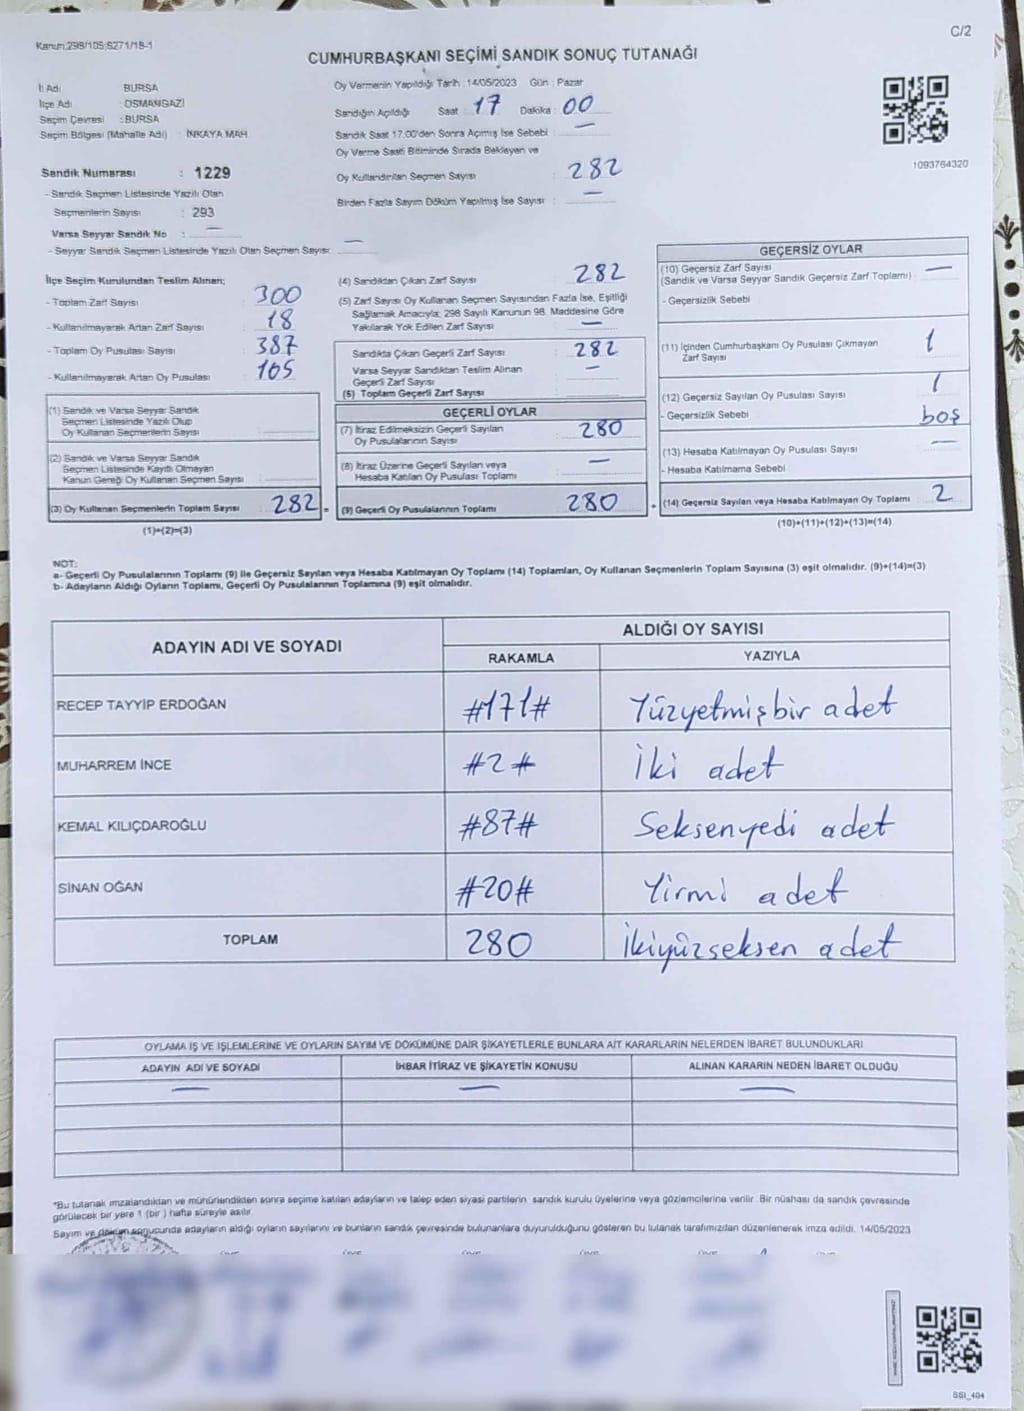 C/2
Kanun;298/105;S271/18-1
CUMHURBAŞKANI SEÇİMİ SANDIK SONUÇ TUTANAĞI
İl Adı BURSA
İlçe Adı : OSMANGAZİ
Seçim Çevresi : BURSA
Seçim Bölgesi (Mahalle Adı) : İNKAYA MAH.
Sandık Numarası : 1229
- Sandık Seçmen Listesinde Yazılı Olan
Seçmenlerin Sayısı : 293
Varsa Seyyar Sandık No : —
- Seyyar Sandık Seçmen Listesinde Yazılı Olan Seçmen Sayısı: —
Oy Vermenin Yapıldığı Tarih : 14/05/2023 Gün : Pazar
Sandığın Açıldığı Saat : 17 Dakika : 00
Sandık Saat 17.00'den Sonra Açılmış İse Sebebi : —
Oy Verme Saati Bitiminde Sırada Bekleyen ve
Oy Kullandırılan Seçmen Sayısı : 282
Birden Fazla Sayım Döküm Yapılmış İse Sayısı : —
1093764320
İlçe Seçim Kurulundan Teslim Alınan;
- Toplam Zarf Sayısı : 300
- Kullanılmayarak Artan Zarf Sayısı : 18
- Toplam Oy Pusulası Sayısı : 387
- Kullanılmayarak Artan Oy Pusulası : 105
(1) Sandık ve Varsa Seyyar Sandık
Seçmen Listesinde Yazılı Olup
Oy Kullanan Seçmenlerin Sayısı :
(2) Sandık ve Varsa Seyyar Sandık
Seçmen Listesinde Kayıtlı Olmayan
Kanun Gereği Oy Kullanan Seçmen Sayısı :
(3) Oy Kullanan Seçmenlerin Toplam Sayısı : 282 =
(1)+(2)=(3)
(4) Sandıktan Çıkan Zarf Sayısı : 282
(5) Zarf Sayısı Oy Kullanan Seçmen Sayısından Fazla İse, Eşitliği
Sağlamak Amacıyla; 298 Sayılı Kanunun 98. Maddesine Göre
Yakılarak Yok Edilen Zarf Sayısı : —
Sandıkta Çıkan Geçerli Zarf Sayısı : 282
Varsa Seyyar Sandıktan Teslim Alınan
Geçerli Zarf Sayısı : —
(6) Toplam Geçerli Zarf Sayısı :
GEÇERLİ OYLAR
(7) İtiraz Edilmeksizin Geçerli Sayılan
Oy Pusulalarının Sayısı : 280
(8) İtiraz Üzerine Geçerli Sayılan veya
Hesaba Katılan Oy Pusulası Toplamı : —
(9) Geçerli Oy Pusulalarının Toplamı : 280 +
GEÇERSİZ OYLAR
(10) Geçersiz Zarf Sayısı : —
(Sandık ve Varsa Seyyar Sandık Geçersiz Zarf Toplamı) :
- Geçersizlik Sebebi
(11) İçinden Cumhurbaşkanı Oy Pusulası Çıkmayan
Zarf Sayısı : 1
(12) Geçersiz Sayılan Oy Pusulası Sayısı : 1
- Geçersizlik Sebebi : boş
(13) Hesaba Katılmayan Oy Pusulası Sayısı : —
- Hesaba Katılmama Sebebi :
(14) Geçersiz Sayılan veya Hesaba Katılmayan Oy Toplamı : 2
(10)+(11)+(12)+(13)=(14)
NOT:
a- Geçerli Oy Pusulalarının Toplamı (9) ile Geçersiz Sayılan veya Hesaba Katılmayan Oy Toplamı (14) Toplamları, Oy Kullanan Seçmenlerin Toplam Sayısına (3) eşit olmalıdır. (9)+(14)=(3)
b- Adayların Aldığı Oyların Toplamı, Geçerli Oy Pusulalarının Toplamına (9) eşit olmalıdır.
ADAYIN ADI VE SOYADI ALDIĞI OY SAYISI
RAKAMLA YAZIYLA
RECEP TAYYİP ERDOĞAN #171# Yüzyetmişbir adet
MUHARREM İNCE #2# İki adet
KEMAL KILIÇDAROĞLU #87# Seksenyedi adet
SİNAN OĞAN #20# Yirmi adet
TOPLAM 280 İkiyüzseksen adet
OYLAMA İŞ VE İŞLEMLERİNE VE OYLARIN SAYIM VE DÖKÜMÜNE DAİR ŞİKAYETLERLE BUNLARA AİT KARARLARIN NELERDEN İBARET BULUNDUKLARI
ADAYIN ADI VE SOYADI İHBAR İTİRAZ VE ŞİKAYETİN KONUSU ALINAN KARARIN NEDEN İBARET OLDUĞU
— — —
*Bu tutanak imzalandıktan ve mühürlendikten sonra seçime katılan adayların ve talep eden siyasi partilerin sandık kurulu üyelerine veya gözlemcilerine verilir. Bir nüshası da sandık çevresinde
görülecek bir yere 1 (bir ) hafta süreyle asılır.
Sayım ve döküm sonucunda adayların aldığı oyların sayılarını ve bunların sandık çevresinde bulunanlara duyurulduğunu gösteren bu tutanak tarafımızdan düzenlenerek imza edildi. 14/05/2023
SSI_404